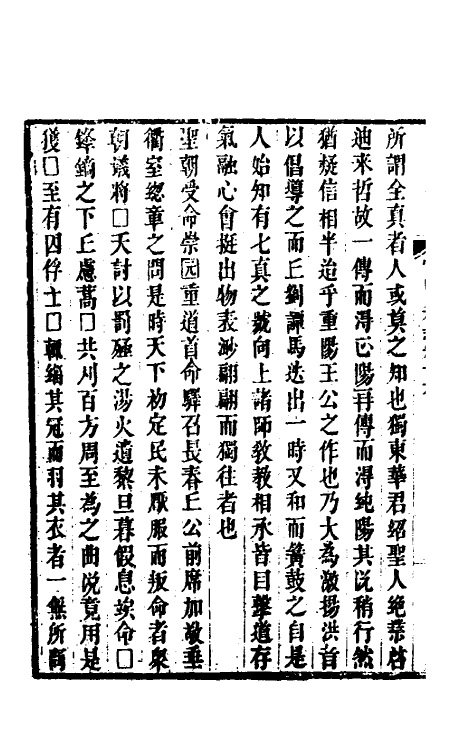 所謂全真者人或莫之知也獨東華君紹聖人絶業啓
迪来哲故一傳而淂正陽再傳而淂純陽其說稍行然
猶疑信相半迨乎重陽王公之作也乃大為敭揚洪音
以倡導之而丘劉譚馬迭出一時又和而簧鼓之自是
人始知有七真之號向上諸師敎教相承皆目擊道存
氣融心會挺出物表渺翩翩而獨往者也
聖朝受命崇元重道首命驛召長春丘公前席加敬垂
衢室緫章之問是時天下初定民未厭服而叛命者衆
朝議將囗天討以罰殛之湯火遺黎旦暮假息竢命囗
鋒鏑之下丘慮蒿囗共刈百方周至為之曲說竟用是
獲囗至有囚俘士囗輒縚其冠而羽其衣者一無所問